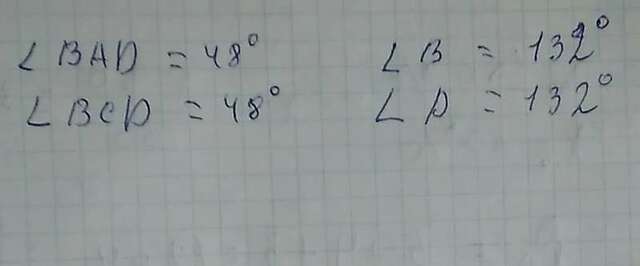 ∠ BAD = 48° ∠ B = 132°
∠ BCD = 48° ∠ D = 132°